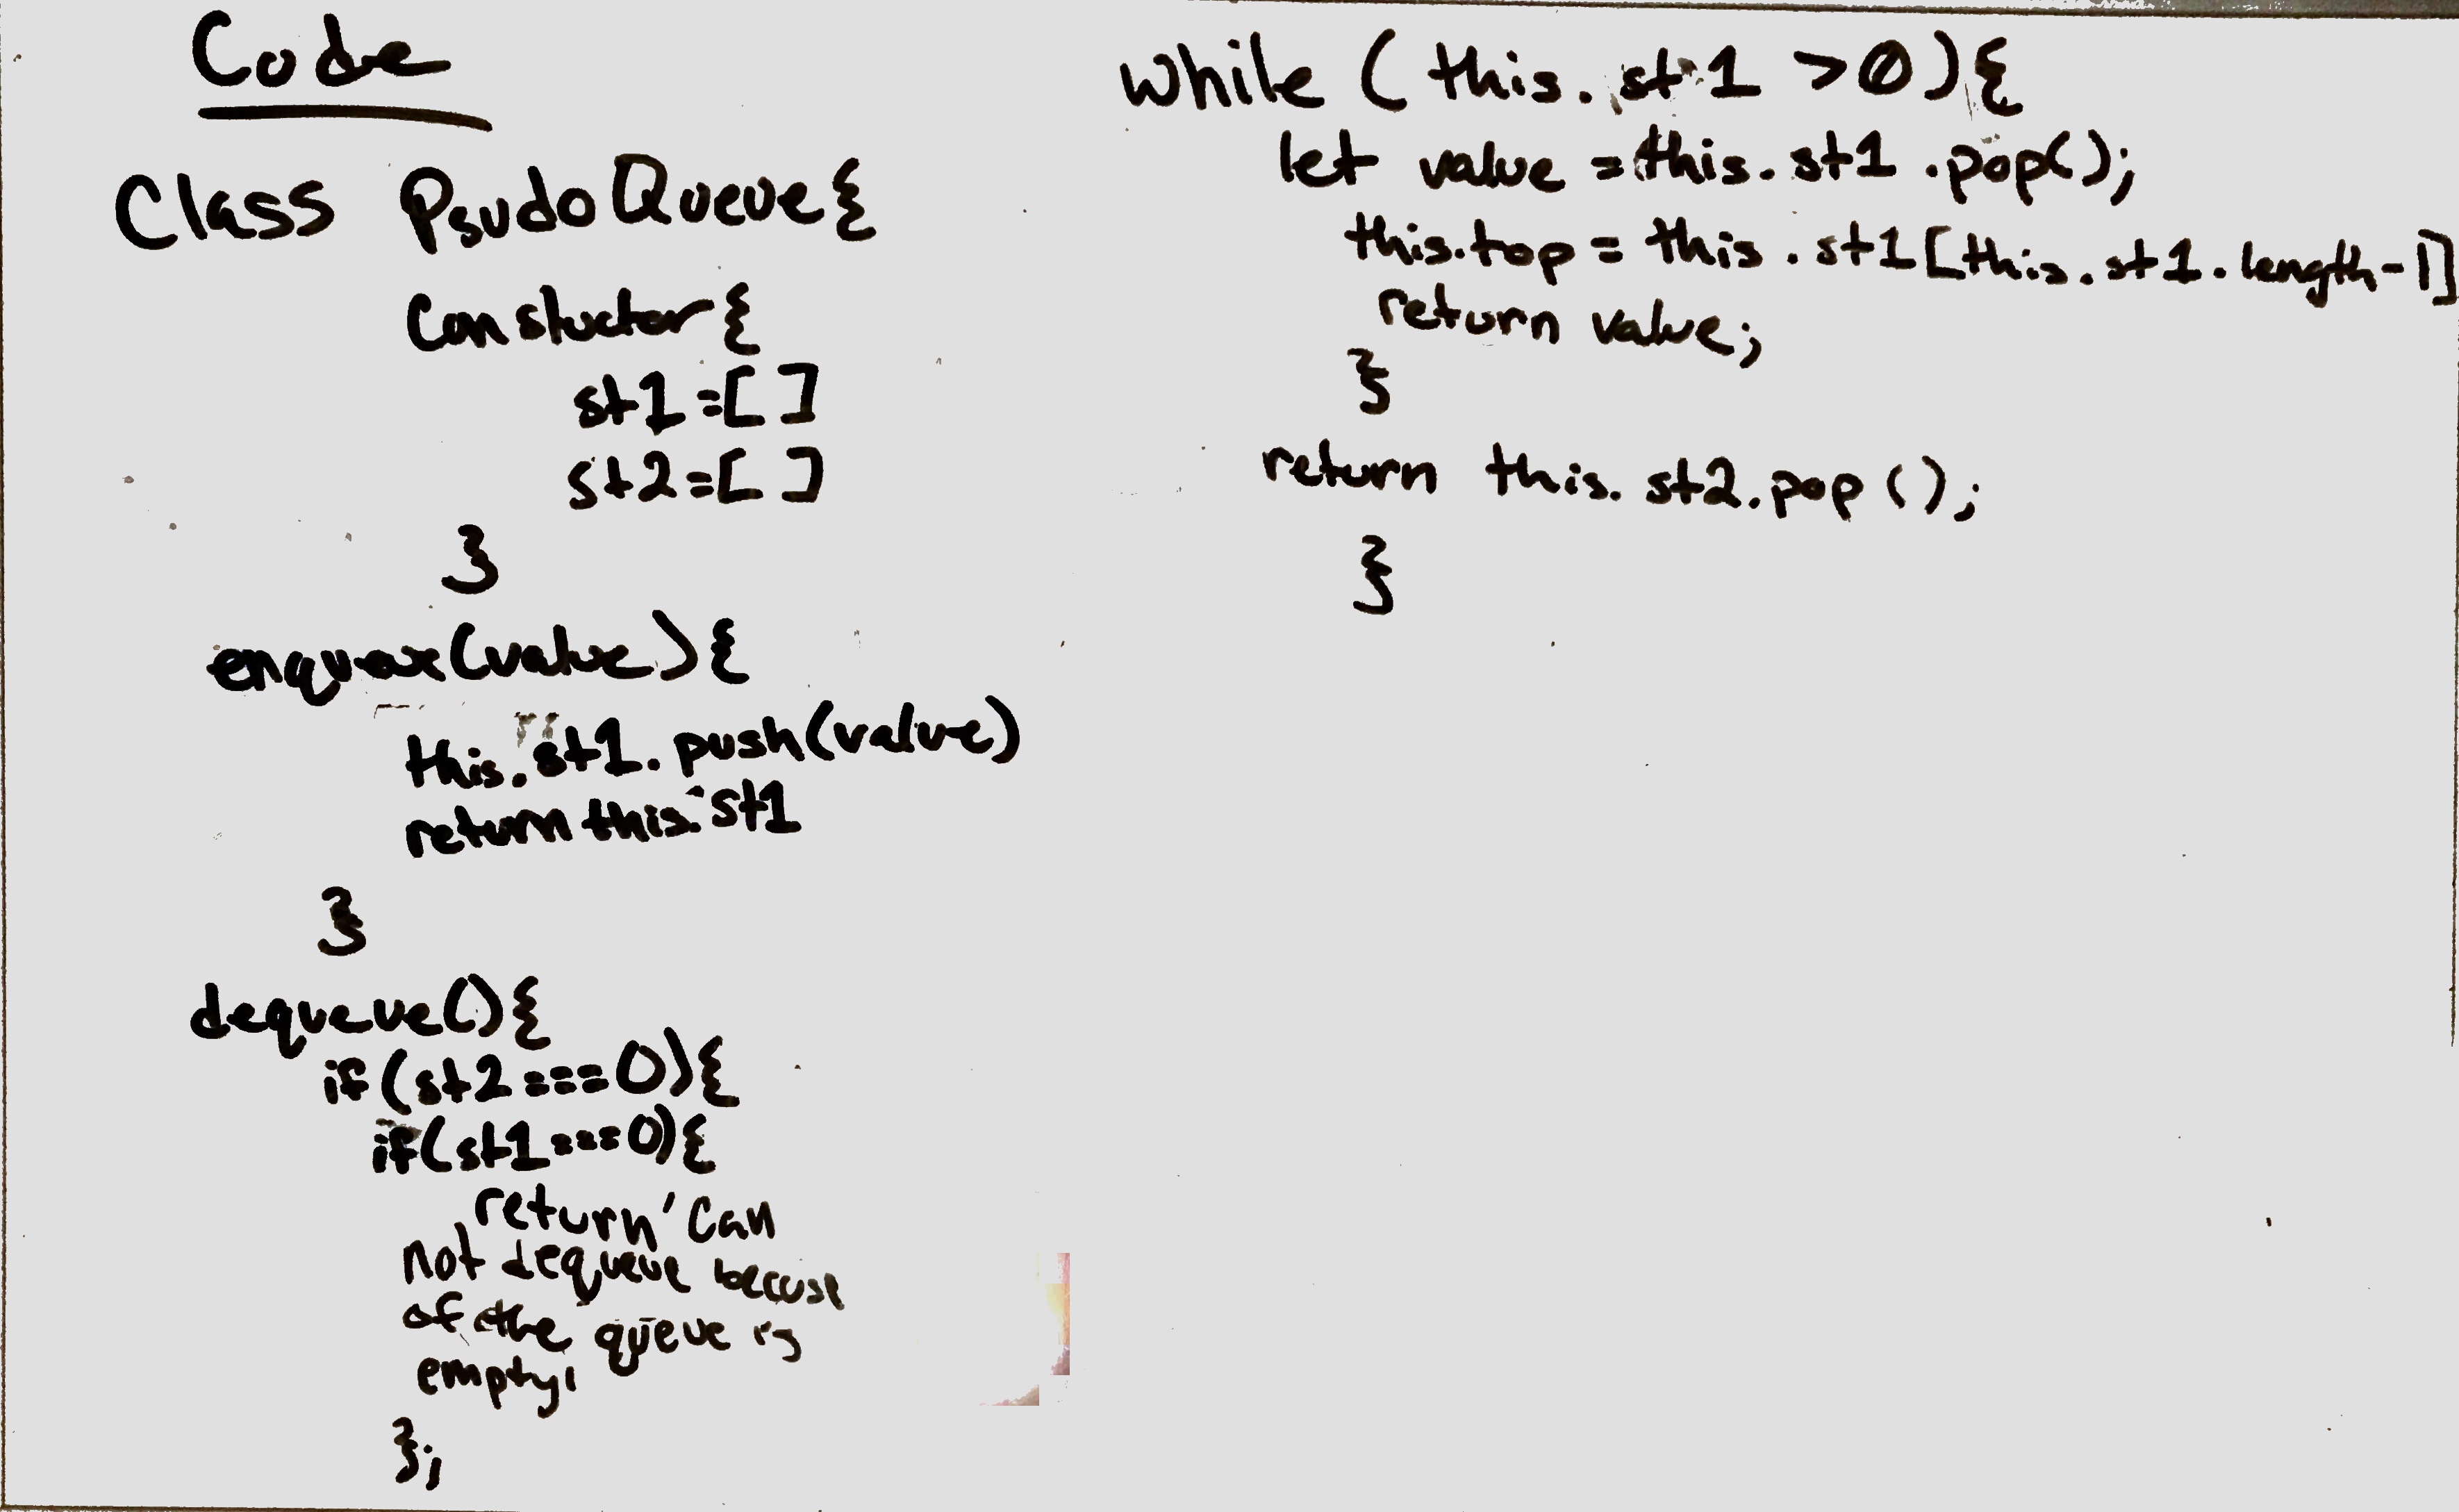 Code
Class PsudoQueue{
Constuctor{
st1=[ ]
st2=[ ]
}
enqueue(value){
this.st1.push(value)
return this.st1
}
dequeue(){
if(st2===0){
if(st1===0){
return 'Can
not dequeue becuse
of the queue is
empty'
};
While (this.st1 >0){
let value =this.st1.pop();
this.top = this.st1[this.st1.length-1]
return value;
}
return this.st2.pop();
}